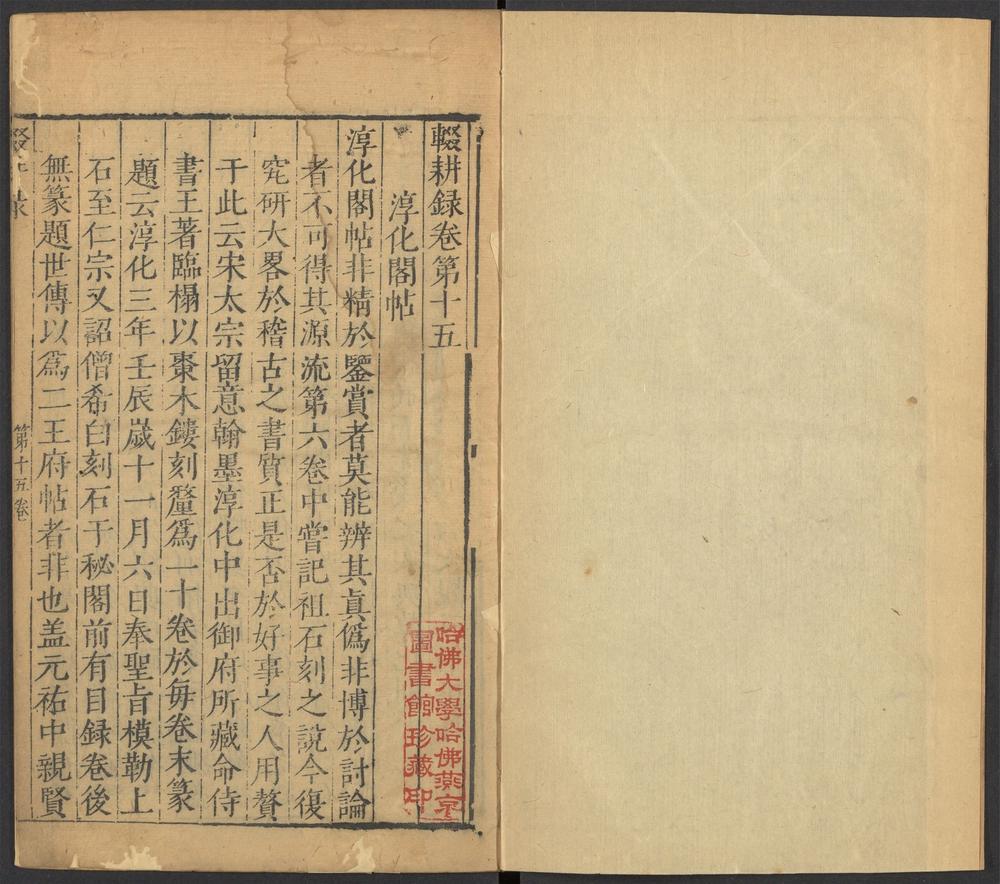 輟耕録卷第十五
淳化閣帖
淳化閣帖非精於鑒賞者莫能辨其真僞非博於討論
者不可得其源流第六卷中嘗記祖石刻之說今復
究研大畧於稽古之書質正是否於好事之人用贅
于此云宋太宗留意翰墨淳化中出御府所藏命侍
書王著臨榻以棗木鏤刻釐爲一十卷於每卷末篆
題云淳化三年壬辰歲十一月六日奉聖旨模勒上
石至仁宗又詔僧希白刻石于秘閣前有目録卷後
無篆題世傳以爲二王府帖者非也盖元祐中親賢
第十五卷
哈佛大學哈佛燕京
圖書館珍藏印